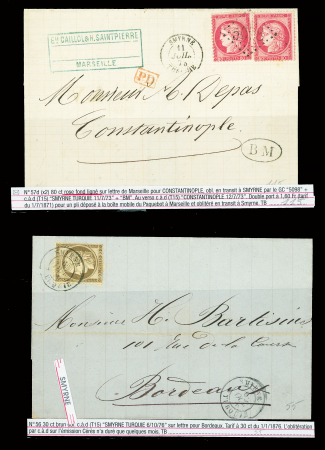 Ev. CAILLOL & H. SAINTPIERRE
MARSEILLE
SMYRNE
11
JUIL.
73
PD
Monsieur A. Depas
Constantinople
BM
N°57d (x2) 80 ct rose fond ligné sur lettre de Marseille pour CONSTANTINOPLE, obl. en transit à SMYRNE par le GC "5098" +
c.à.d (T15) "SMYRNE TURQUIE 11/7/73" + "BM". Au verso c.à.d (T15) "CONSTANTINOPLE 12/7/73". Double port à 1,60 fr (tarif
du 1/7/1871) pour un pli déposé à la boite mobile du Paquebot à Marseille et oblitéré en transit à Smyrne. TB
Monsieur H. Barlissins
101 Rue de la Course
Bordeaux
SMYRNE
N°56 30 ct brun obl. c.à.d (T15) "SMYRNE TURQUIE 6/10/76" sur lettre pour Bordeaux. Tarif à 30 ct du 1/1/1876. L'oblitération
par c.à.d sur l'émission Cérès n'a duré que quelques mois. TB